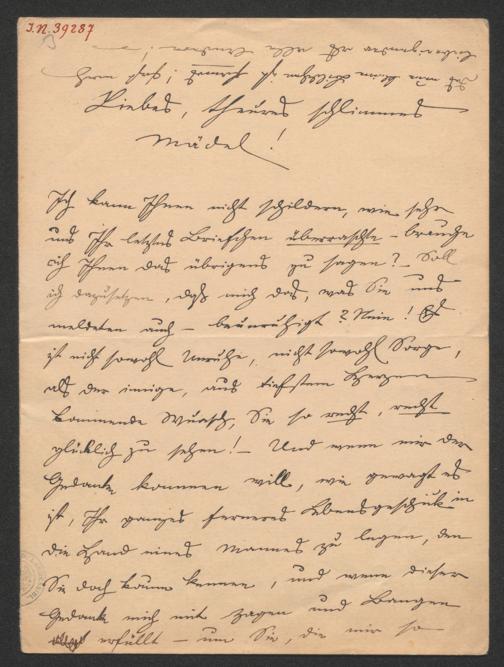 I.N. 39287
Liebes, theures schlimmes
Mädel!
Ich kann Ihnen nicht schildern, wie sehr
uns Ihr letztes Briefchen überraschte – brauche
ich Ihnen das übrigens zu sagen? – Soll
ich dazusetzen, daß mich das, was Sie uns
meldeten auch – beunruhigt? Nein! Es
ist nicht sowohl Unruhe, nicht sowohl Sorge,
als der innige, aus tiefstem Herzen
kommende Wunsch, Sie so recht, recht
glücklich zu sehen! – Und wenn mir der
Gedanke kommen will, wie gewagt es
ist, Ihr ganzes ferneres Lebensgeschick in
die Hand eines Mannes zu legen, den
Sie doch kaum kennen, und wenn dieser
Gedanke mich mit Zagen und Bangen
erfüllt – um Sie, die mir so